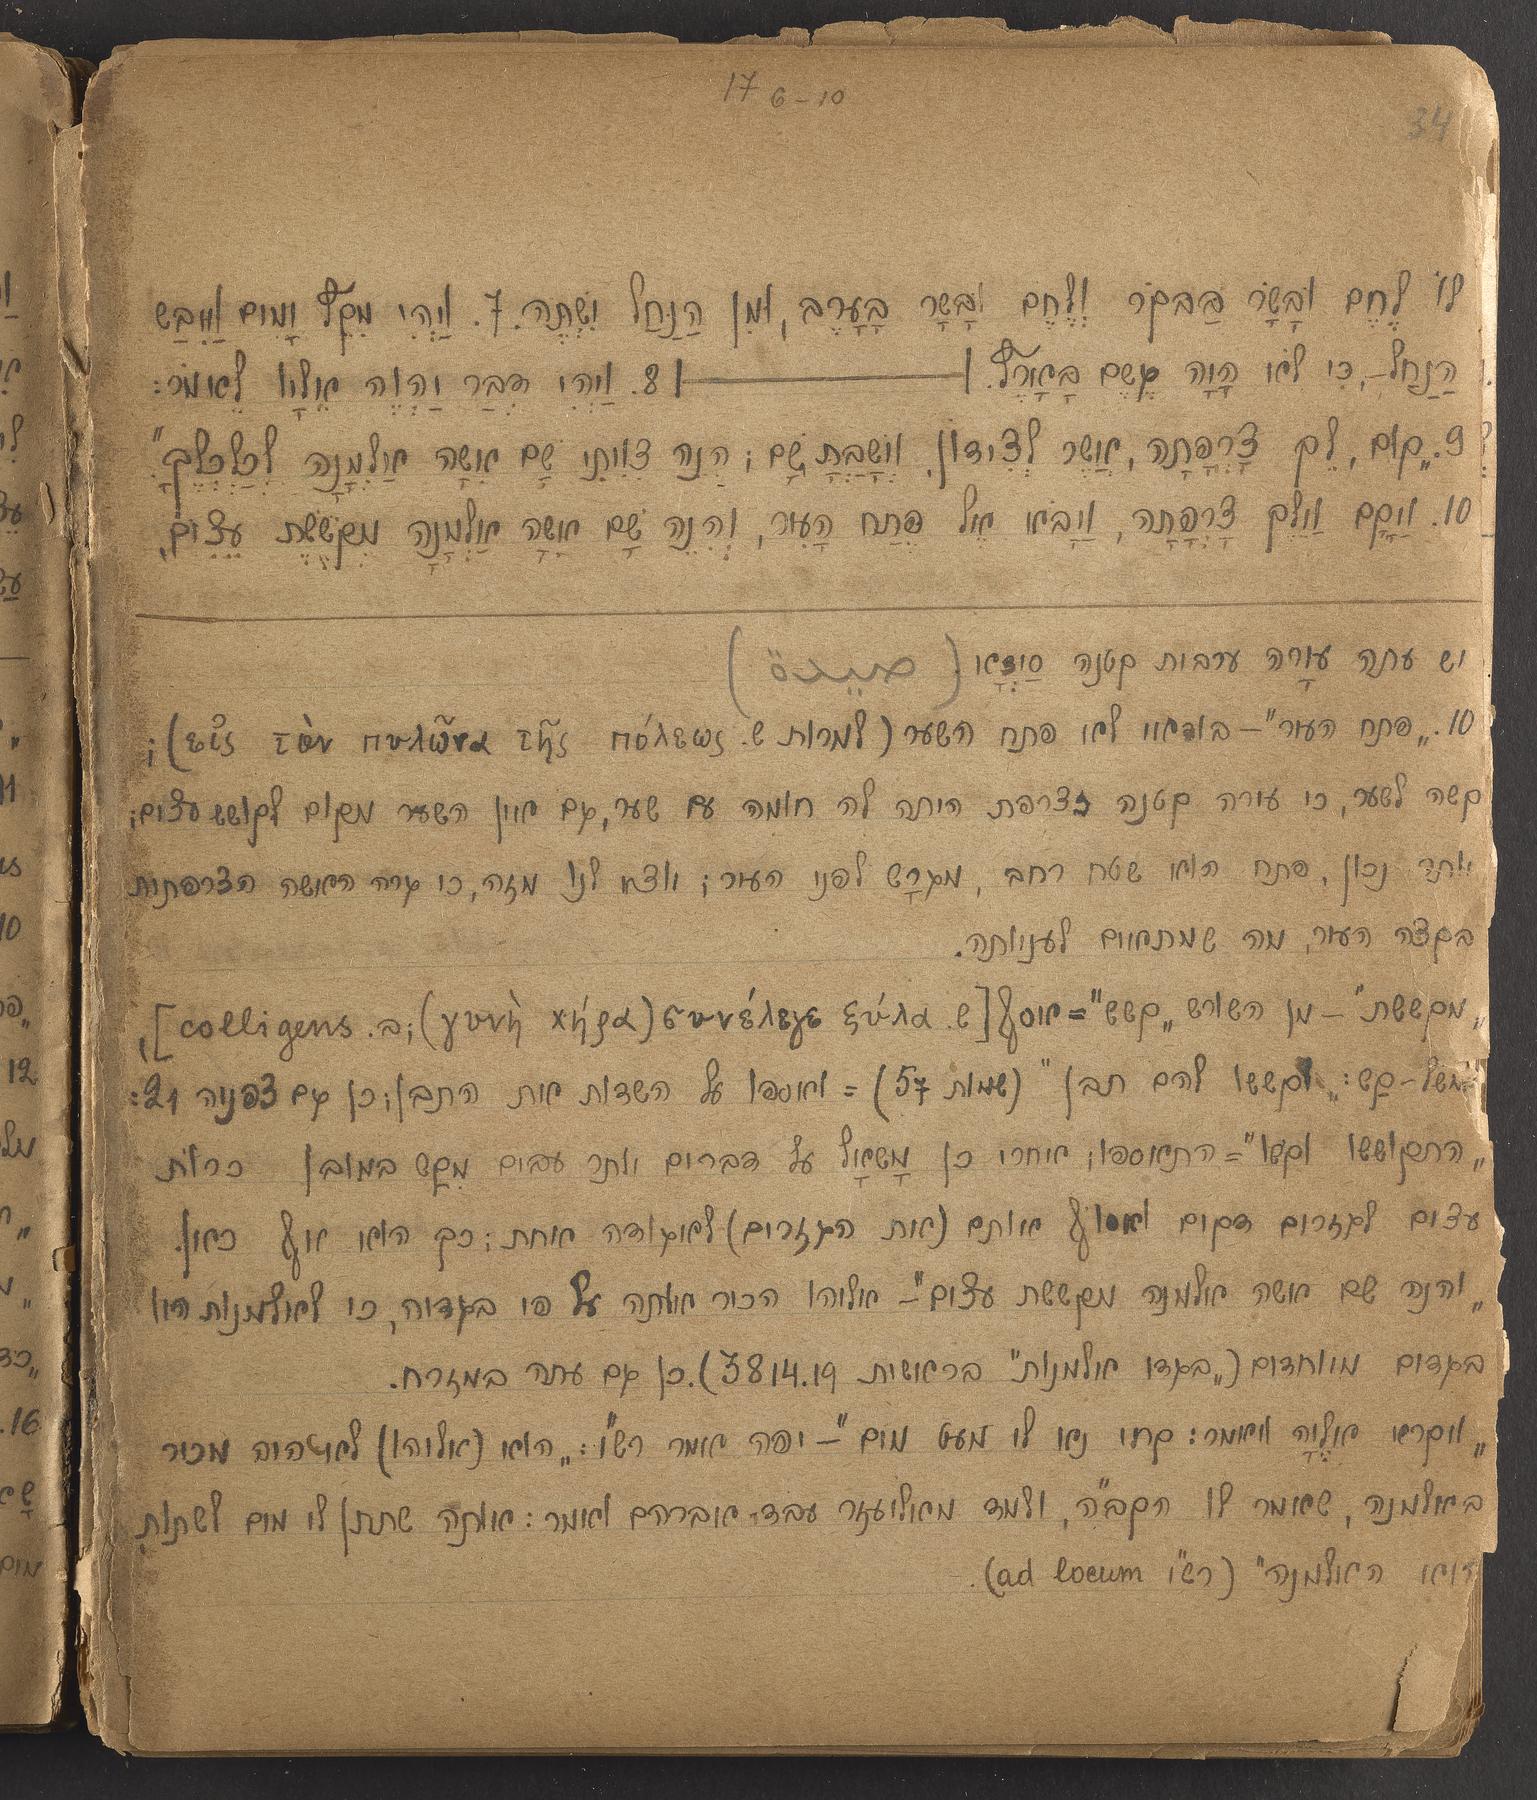 17 6-10
34
לוֹ לֶחֶם וּבָשָׂר בַּבֹּקֶר וְלֶחֶם וּבָשָׂר בָּעָרֶב, וּמִן הַנַּחַל יִשְׁתֶּה. 7. וַיְהִי מִקֵּץ יָמִים וַיִּיבַשׁ
הַנַּחַל, כִּי לֹא הָיָה גֶשֶׁם בָּאָרֶץ. | 8. וַיְהִי דְּבַר יַהְוֶה אֵלָיו לֵאמֹר:
9. „קוּם, לֵךְ צָרְפָתָה, אֲשֶׁר לְצִידוֹן, וְיָשַׁבְתָּ שָׁם; הִנֵּה צִוִּיתִי שָׁם אִשָּׁה אַלְמָנָה לְכַלְכְּלֶךָ"
10. וַיָּקָם וַיֵּלֶךְ צָרְפָתָה, וַיָּבֹא אֶל פֶּתַח הָעִיר, וְהִנֵּה שָׁם אִשָּׁה אַלְמָנָה מְקֹשֶׁשֶׁת עֵצִים,
יש עתה עיָרה ערבית קטנה סַיְדָא (
10. „פתח העיר" – בודאי לא פתח השער (למרות ש. εἰς τὸν πυλῶνα τῆς πόλεως);
קשה לשער, כי עירה קטנה כצרפת היתה לה חומה עם שער, גם אין השער מקום לקושש עצים;
יותר נכון, פתח הוא שטח רחב, מגרָש לפני העיר; יוצא לנו מזה, כי גרה האשה הצרפתית
בקצה העיר, מה שמתאים לעניותה.
„מקששת" – מן השורש „קשש" = אוסף [ש. συνέλεγε ξύλα (γυνὴ χήρα); ב. colligens],
למשל - קַש: „לקשש להם תבן" (שמות 5 7) = ואספו על השדות את התבן; כן גם צפניה 2 1:
„התקוששו וקשו" = התאספו; אחרי כן מָשאָל על דברים יותר עבים מִקַש במובן כרות
עצים לגזרים דקים ואסוף אותם (את הגזרים) לאגודה אחת; כך הוא אף כאן.
„והנה שם אשה אלמנה מקששת עצים" – אליהו הכיר אותה על פי בגדיה, כי לאלמנות היו
בגדים מיוחדים („בגדי אלמנות" בראשית 38 14.19). כן גם עתה במזרח.
„ויקרא אֵלֶיהָ ויאמר: קחי נא לי מעט מים" – יפה אמר רש"י: „הוא (אליהו) לא היה מכיר
באלמנה, שאמר לו הקב"ה, ולמד מאליעזר עבד אברהם ואמר: אותה שתתן לי מים לשתות
היא האלמנה" (רש"י ad locum).